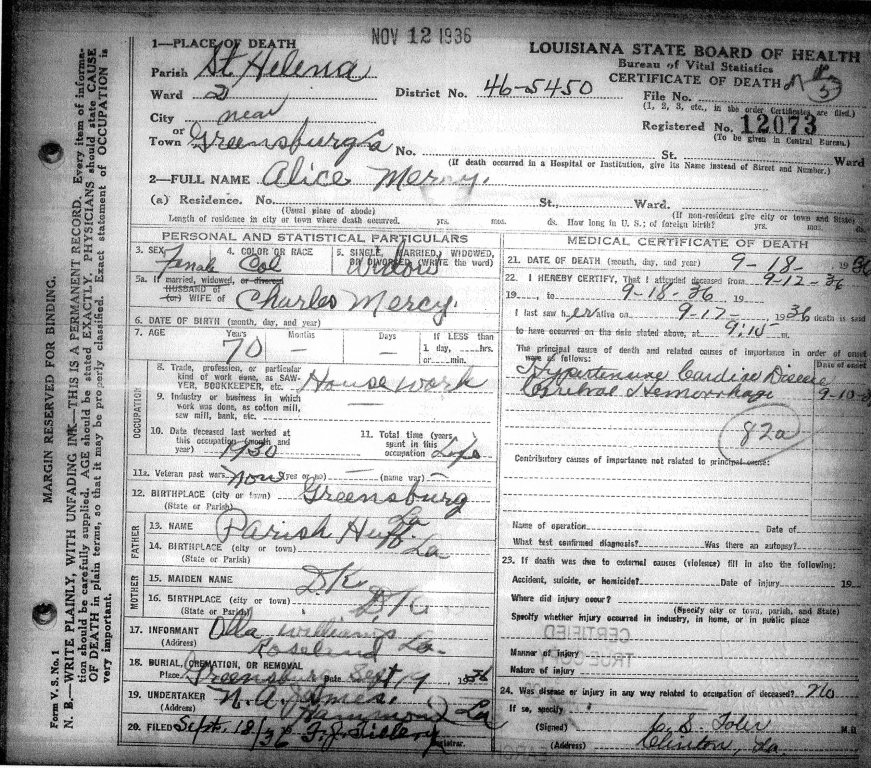 NOV 12 1936
LOUISIANA STATE BOARD OF HEALTH
Bureau of Vital Statistics
CERTIFICATE OF DEATH
1—PLACE OF DEATH
Parish St Helena
Ward 2
District No. 46-5450
File No.
(1, 2, 3, etc., in the order Certificates are filed.)
City near
or
Town Greensburg La
Registered No. 12073
(To be given in Central Bureau.)
No. St. Ward
(If death occurred in a Hospital or Institution, give its Name instead of Street and Number.)
2—FULL NAME Alice Mercy.
(a) Residence. No. St., Ward.
(Usual place of abode) (If non-resident give city or town and State)
Length of residence in city or town where death occurred. yrs. mos. ds. How long in U. S.; of foreign birth? yrs. mos. ds.
PERSONAL AND STATISTICAL PARTICULARS
3. SEX Female
4. COLOR OR RACE Col
5. SINGLE, MARRIED, WIDOWED, OR DIVORCED (WRITE the word) Widow
5a. If married, widowed, or divorced
HUSBAND OF
(or) WIFE OF Charles Mercy.
6. DATE OF BIRTH (month, day, and year)
7. AGE Years Months Days If LESS than
70 — — 1 day, hrs.
or min.
OCCUPATION
8. Trade, profession, or particular
kind of work done, as SAW-
YER, BOOKKEEPER, etc. House work
9. Industry or business in which
work was done, as cotton mill,
saw mill, bank, etc. —
10. Date deceased last worked at
this occupation (month and
year) 1930
11. Total time (years
spent in this
occupation Life
11a. Veteran past wars None (yes or no) — (name war) —
12. BIRTHPLACE (city or town) Greensburg
(State or Parish) La
FATHER
13. NAME Parish Huff.
14. BIRTHPLACE (city or town) La
(State or Parish)
MOTHER
15. MAIDEN NAME D.K.
16. BIRTHPLACE (city or town) D K
(State or Parish)
17. INFORMANT Olla Williams
(Address) Roseland La.
18. BURIAL, CREMATION, OR REMOVAL
Place Greensburg Date Sept 19 1936
19. UNDERTAKER N. A. James.
(Address) Hammond La
20. FILED Sept. 18/36 Registrar.
MEDICAL CERTIFICATE OF DEATH
21. DATE OF DEATH (month, day, and year) 9-18- 1936
22. I HEREBY CERTIFY, That I attended deceased from 9-12-36
19 , to 9-18-36 19
I last saw h er alive on 9-17- 1936 death is said
to have occurred on the date stated above, at 9:15 m.
The principal cause of death and related causes of importance in order of onset
were as follows: Date of onset
Hypertensive Cardiac Disease
Cerebral Hemorrhage 9-10-3
82a
Contributory causes of importance not related to principal cause:
Name of operation Date of
What test confirmed diagnosis? Was there an autopsy?
23. If death was due to external causes (violence) fill in also the following:
Accident, suicide, or homicide? Date of injury 19
Where did injury occur?
(Specify city or town, parish, and State)
Specify whether injury occurred in industry, in home, or in public place
Manner of injury
Nature of injury
24. Was disease or injury in any way related to occupation of deceased? no
If so, specify
(Signed) C. S. Toler M.D.
(Address) Clinton, La.
MARGIN RESERVED FOR BINDING.
N. B.—WRITE PLAINLY, WITH UNFADING INK—THIS IS A PERMANENT RECORD. Every item of informa-
tion should be carefully supplied. AGE should be stated EXACTLY. PHYSICIANS should state CAUSE
OF DEATH in plain terms, so that it may be properly classified. Exact statement of OCCUPATION is
very important.
Form V. S. No. 1